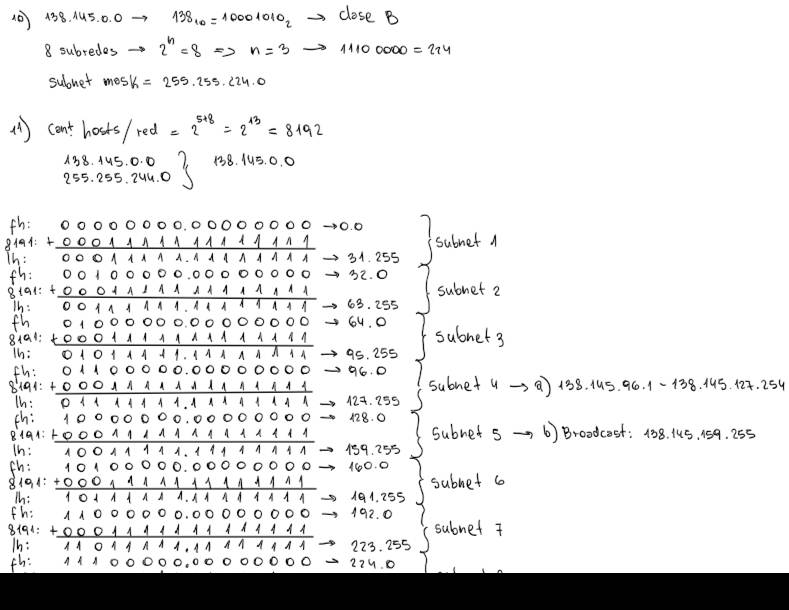 10) 138.145.0.0 → 138₁₀ = 10001010₂ → clase B
8 subredes → 2ⁿ = 8 => n = 3 → 1110 0000 = 224
subnet mask = 255.255.224.0
11) Cant. hosts/red = 2⁵⁺⁸ = 2¹³ = 8192
138.145.0.0 } 138.145.0.0
255.255.244.0
fh: 0 0 0 0 0 0 0 0.0 0 0 0 0 0 0 0 → 0.0
8191: + 0 0 0 1 1 1 1 1 1 1 1 1 1 1 1 1 } subnet 1
lh: 0 0 0 1 1 1 1 1.1 1 1 1 1 1 1 1 → 31.255
fh: 0 0 1 0 0 0 0 0.0 0 0 0 0 0 0 0 → 32.0
8191: + 0 0 0 1 1 1 1 1 1 1 1 1 1 1 1 1 } subnet 2
lh: 0 0 1 1 1 1 1 1.1 1 1 1 1 1 1 1 → 63.255
fh 0 1 0 0 0 0 0 0.0 0 0 0 0 0 0 0 → 64.0
8191: + 0 0 0 1 1 1 1 1 1 1 1 1 1 1 1 1 } subnet 3
lh: 0 1 0 1 1 1 1 1.1 1 1 1 1 1 1 1 → 95.255
fh: 0 1 1 0 0 0 0 0.0 0 0 0 0 0 0 0 → 96.0
8191: + 0 0 0 1 1 1 1 1 1 1 1 1 1 1 1 1 } subnet 4 → a) 138.145.96.1 - 138.145.127.254
lh: 0 1 1 1 1 1 1 1.1 1 1 1 1 1 1 1 → 127.255
fh: 1 0 0 0 0 0 0 0.0 0 0 0 0 0 0 0 → 128.0
8191: + 0 0 0 1 1 1 1 1 1 1 1 1 1 1 1 1 } subnet 5 → b) Broadcast: 138.145.159.255
lh: 1 0 0 1 1 1 1 1.1 1 1 1 1 1 1 1 → 159.255
fh: 1 0 1 0 0 0 0 0.0 0 0 0 0 0 0 0 → 160.0
8191: + 0 0 0 1 1 1 1 1 1 1 1 1 1 1 1 1 } subnet 6
lh: 1 0 1 1 1 1 1 1.1 1 1 1 1 1 1 1 → 191.255
fh: 1 1 0 0 0 0 0 0.0 0 0 0 0 0 0 0 → 192.0
8191: + 0 0 0 1 1 1 1 1 1 1 1 1 1 1 1 1 } subnet 7
lh: 1 1 0 1 1 1 1 1.1 1 1 1 1 1 1 1 → 223.255
fh: 1 1 1 0 0 0 0 0.0 0 0 0 0 0 0 0 → 224.0